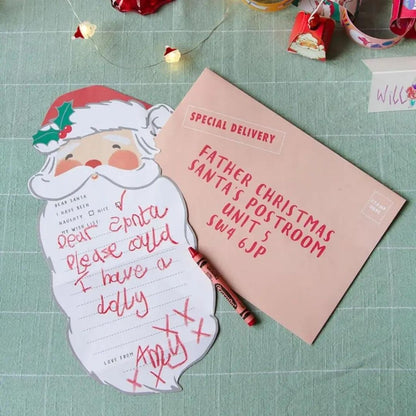 SPECIAL DELIVERY
FATHER CHRISTMAS
SANTA'S POSTROOM
UNIT 5
SW4 6JP
STAMP
HERE
WILL
DEAR SANTA
I HAVE BEEN
NAUGHTY NICE
MY WISH LIST:
Dear santa
Please could
I have a
dolly
LOVE FROM Amey
X X X X X X